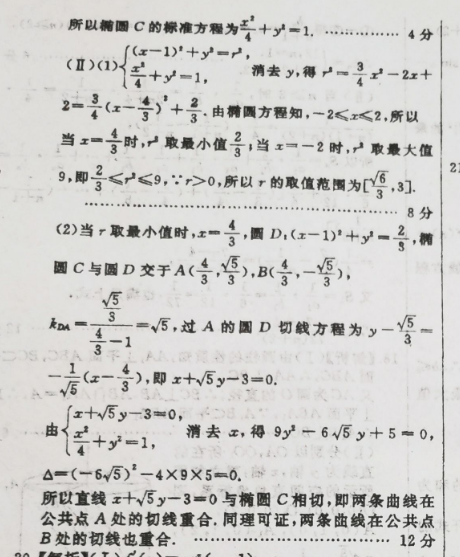 所以椭圆 C 的标准方程为 x²/4+y²=1. …………… 4 分
(Ⅱ)(1){(x-1)²+y²=r²,
x²/4+y²=1, 消去 y,得 r²=3/4x²-2x+
2=3/4(x-4/3)²+2/3.由椭圆方程知,-2≤x≤2,所以
当 x=4/3时,r² 取最小值2/3;当 x=-2 时,r² 取最大值
9,即2/3≤r²≤9,∵r>0,所以 r 的取值范围为[√6/3,3].
…………………………………… 8 分
(2)当 r 取最小值时,x=4/3,圆 D:(x-1)²+y²=2/3,椭
圆 C 与圆 D 交于 A(4/3,√5/3),B(4/3,-√5/3),
k_DA=(√5/3)/(4/3-1)=√5,过 A 的圆 D 切线方程为 y-√5/3=
-1/√5(x-4/3),即 x+√5y-3=0.
由{x+√5y-3=0,
x²/4+y²=1, 消去 x,得 9y²-6√5y+5=0,
Δ=(-6√5)²-4×9×5=0.
所以直线 x+√5y-3=0 与椭圆 C 相切,即两条曲线在
公共点 A 处的切线重合.同理可证,两条曲线在公共点
B 处的切线也重合. …………………… 12 分